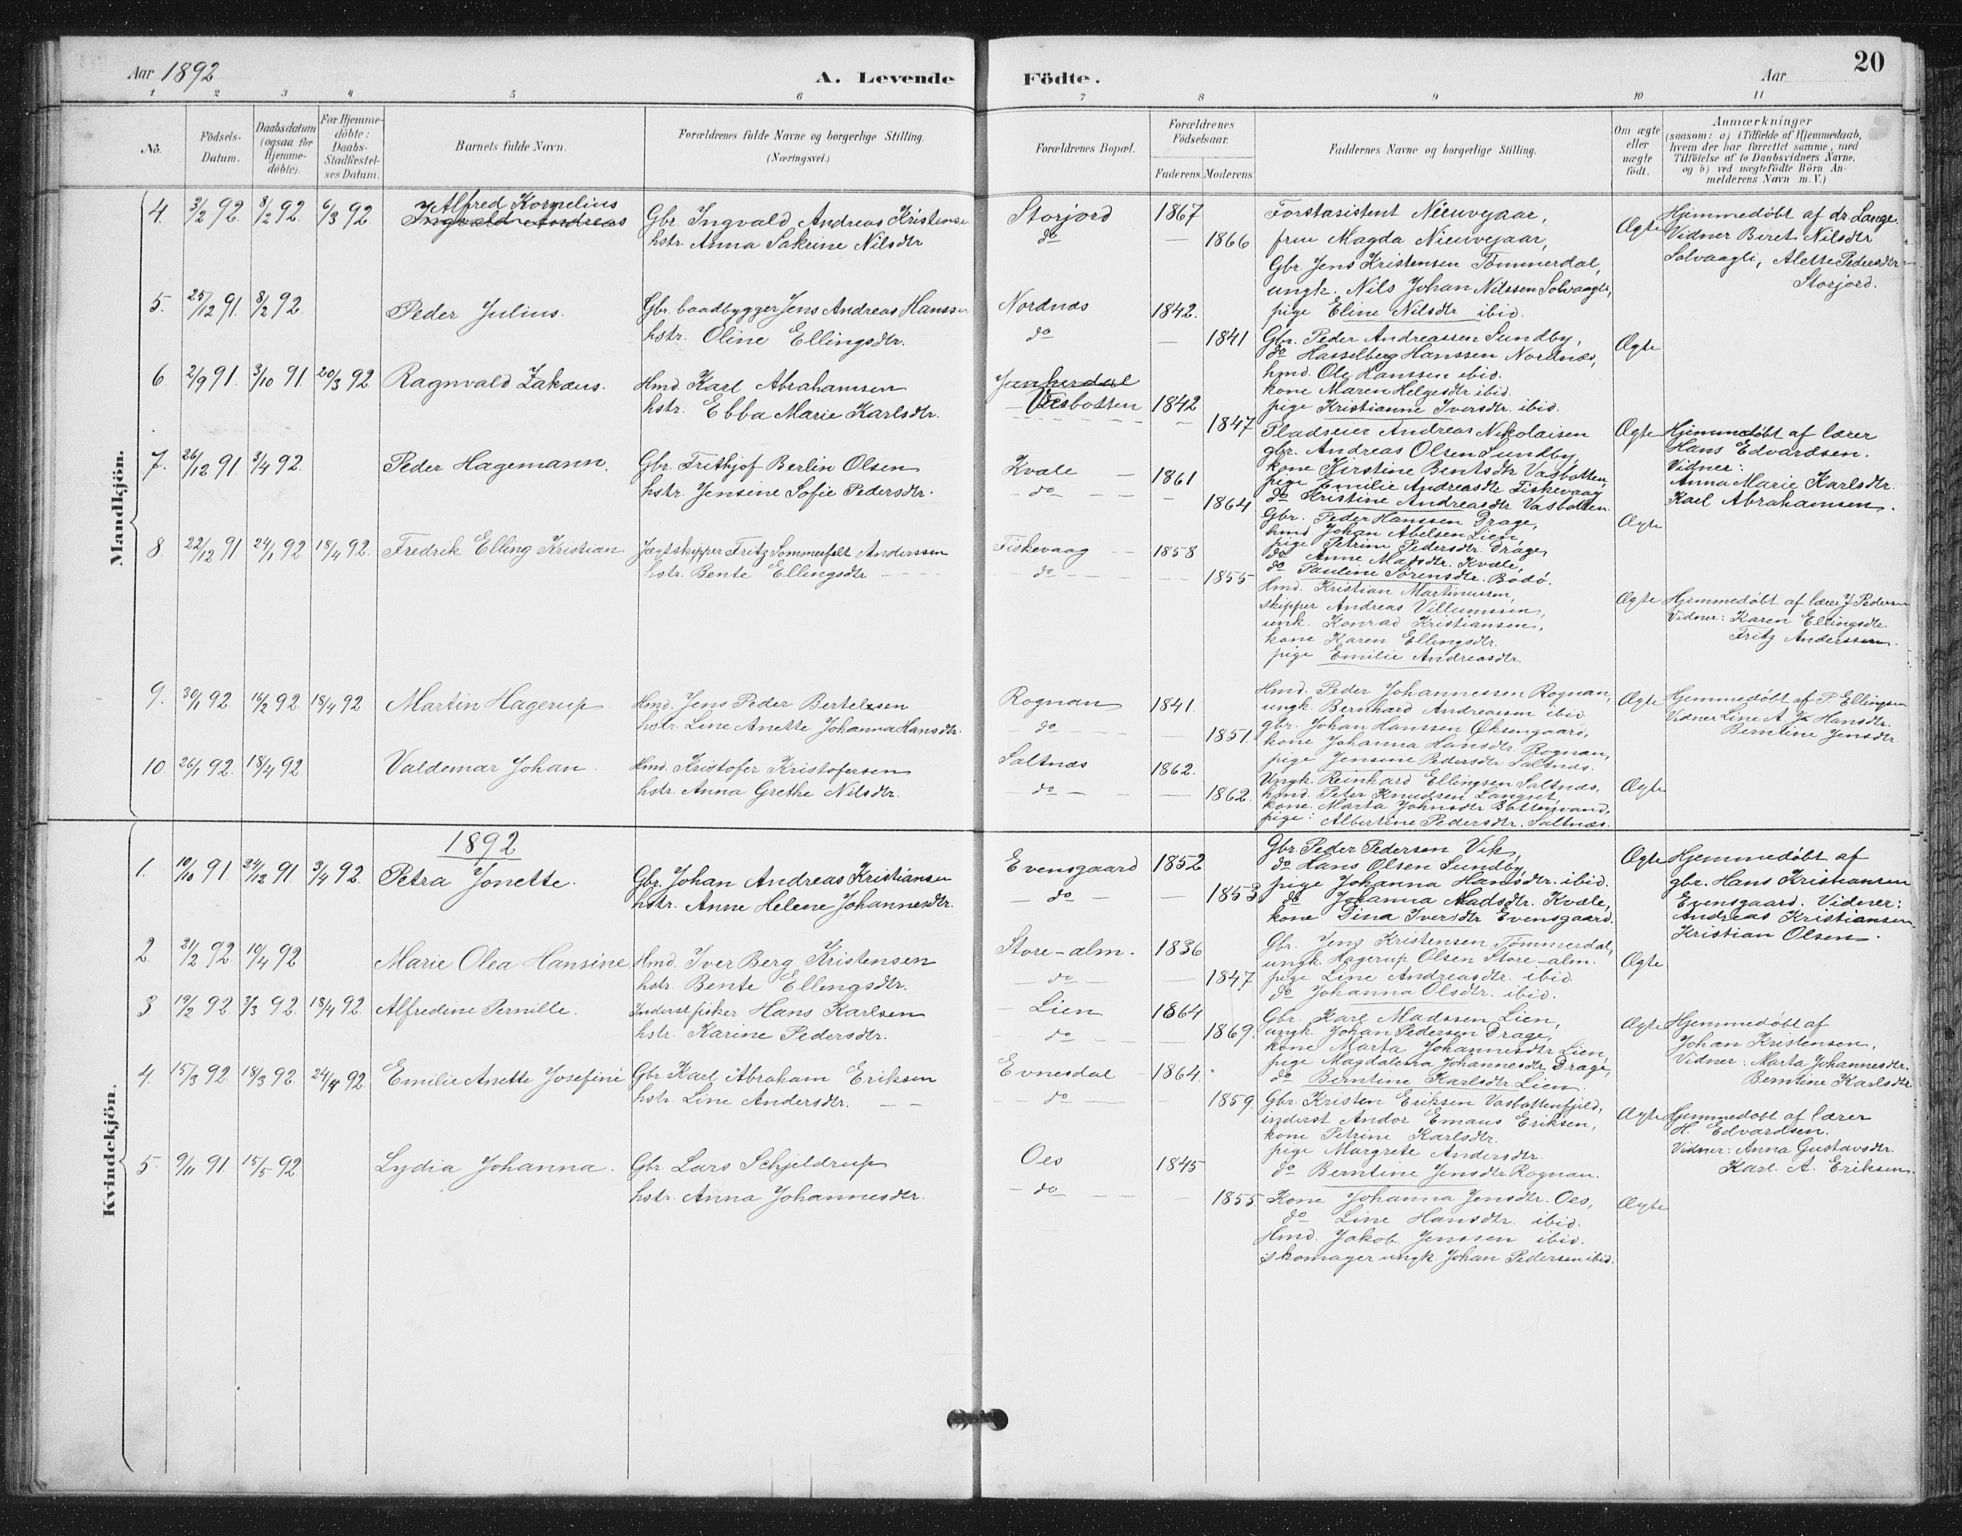 Aar 1892
A. Levende
Födte.
Aar
20
1 2 3 4 5 6 7 8 9 10 11
No.
Födsels-
Datum.
Daabsdatum
(ogsaa for
Hjemme-
döbte).
For Hjemme-
döbte:
Daabs-
Stadfæstel-
ses Datum.
Barnets fulde Navn.
Forældrenes fulde Navne og borgerlige Stilling.
(Næringsvei.)
Forældrenes Bopæl.
Forældrenes
Födselsaar.
Faderens Moderens
Faddernes Navne og borgerlige Stilling.
Om ægte
eller
uægte
födt.
Anmærkninger
(saasom: a) i Tilfælde af Hjemmedaab,
hvem der har forrettet samme, med
Tilföielse af to Daabsvidners Navne,
og b) ved uægtefödte Börn An-
melderens Navn m. V.)
Mandkjön.
4. 3/2 92. 8/2 92. 6/3 92
Alfred Kornelius
Ingvald Andreas
Gbr. Ingvald Andreas Kristense
hstr. Anna Sakrine Nilsdtr
Storjord
do
1867
1866
Forstasistent Nieuvejaar,
frue Magda Nieuvejaar,
Gbr. Jens Kristensen Tømmerdal,
ungk. Nils Johan Nilssen Solvaagli,
pige Eline Nilsdtr ibid.
Ægte
Hjemmedøbt af dr. Lange.
Vidner Beret Nilsdtr
Solvaagli, Alette Pedersdtr
Storjord.
5. 25/12 91. 8/2 92.
Peder Julius.
Gbr. baadbygger Jens Andreas Hanssen
hstr. Oline Ellingsdtr.
Nordnæs
do
1842.
1841
Gbr. Peder Andreassen Sundby,
do Hasselberg Hanssen Nordnæs,
hmd. Ole Hanssen ibid.
kone Maren Helgesdtr ibid.
pige Kristianne Iversdtr. ibid.
Ægte
6 2/9 91. 3/10 91. 20/3 92.
Ragnvald Zakæus.
Hmd. Karl Abrahamsen
hstr. Ebba Marie Karlsdtr.
Junkerdal
Vasbotten
1842
1847
Pladseier Andreas Nikolaisen
gbr. Andreas Olsen Sundby,
kone Kirstine Bentsdtr Vasbotten,
pige Emilie Andreasdtr Fiskevaag
do Kristine Andreasdtr Vasbotten.
Ægte
Hjemmedøbt af lærer
Hans Edvardsen.
Vidner:
Anna Marie Karlsdtr.
Karl Abrahamsen.
7. 26/12 91 3/4 92.
Peder Hagemann.
Gbr. Frithjof Berlin Olsen
hstr. Jensine Sofie Pedersdtr.
Kvæle
do
1861
1864
Gbr. Peder Hanssen Drage,
hmd Johan Abelsen Lien,
pige Petrine Pedersdtr. Drage,
do Anne Madsdtr. Kvæle,
do Pauline Sørensdtr. Bodø.
Ægte
8. 22/12 91 24/1 92 18/4 92.
Fredrik Elling Kristian
Jægtskipper Fritz Sommerfelt Anderssen
hstr. Bente Ellingsdtr
Fiskevaag
do
1858
1855
Hmd. Kristian Martinussen,
skipper Andreas Villumssen,
unk. Konrad Kristiansen,
kone Karen Ellingsdtr.
pige Emilie Andreasdtr.
Ægte
Hjemmedøbt af lærer J. Pedersen
Vidner: Karen Ellingsdtr.
Fritz Anderssen.
9. 30/1 92 16/2 92. 18/4 92.
Martin Hagerup
Hmd. Jens Peder Bertelssen
hstr. Line Anette Johanna Hansdtr.
Rognan
do
1841.
1851.
Hmd. Peder Johannessen Rognan,
ungk. Bernhard Andreassen ibid
gbr. Johan Hanssen Øksengaard,
kone Johanna Hansdtr. Rognan,
pige Jensine Pedersdtr Saltnæs.
Ægte
Hjemmedøbt af P. Ellingsen
Vidner Line A. J. Hansdtr.
Berntine Jensdtr.
10. 26/1 92. 18/4 92
Valdemar Johan.
Hmd. Kristofer Kristofersen
hstr. Anna Grethe Nilsdtr.
Saltnæs
do
1862.
1862.
Ungk. Reinhard Ellingsen Saltnæs,
hmd. Peter Knudsen Langset,
kone. Marta Johnsdtr Bottenvand,
pige: Albertine Pedersdtr. Saltnæs.
Ægte
Kvindekjön.
1892
1. 10/10 91 24/12 91. 3/4 92.
Petra Jonette.
Gbr. Johan Andreas Kristiansen
hstr. Anne Helene Johannesdtr.
Evensgaard
do
1852
1853
Gbr Peder Pedersen Vik,
do Hans Olsen Sundby,
pige Johanna Hansdtr. ibid.
do Johanna Madsdtr. Kvæle,
kone Dina Iversdtr Evensgaard.
Ægte
Hjemmedøbt af
gbr. Hans Kristiansen
Evensgaard. Vidner:
Andreas Kristiansen
Kristian Olsen.
2 21/2 92 10/4 92
Marie Olea Hansine
Hmd. Iver Berg Kristensen
hstr. Bente Ellingsdtr.
Store-alm.
do
1836
1847
Gbr. Jens Kristensen Tømmerdal,
ungk. Hagerup Olsen Store-alm.
pige Line Andreasdtr. ibid.
do Johanna Olsdtr. ibid.
Ægte
3 19/2 92 3/3 92. 18/4 92.
Alfredine Pernille.
Inderst fisker Hans Karlsen
hstr. Karine Pedersdtr.
Lien
do
1864
1869.
Gbr. Karl Madssen Lien,
ungk. Johan Pedersen Drage,
kone Marta Johannesdtr Lien,
pige Magdalena Johannesdtr Drage,
do Berntine Karlsdtr Lien.
Ægte
Hjemmedøbt af
Johan Kristensen,
Vidner: Marta Johannesdtr.
Berntine Karlsdtr
4. 15/3 92. 18/3 92. 24/4 92.
Emilie Anette Josefine
Gbr Karl Abraham Eriksen
hstr. Line Andersdtr.
Evnesdal
do
1864.
1859
Gbr. Kristen Eriksen Vasbottenfjeld,
inderst Andor Emaus Eriksen,
kone Petrine Karlsdtr.
pige Margrete Andersdtr.
do Berntine Jensdtr Rognan.
Ægte
Hjemmedøbt af lærer
H. Edvardsen.
Vidner: Anna Gustavsdtr.
Karl A. Eriksen.
5. 9/11 91. 15/5 92
Lydia Johanna.
Gbr Lars Schjeldrup
hstr. Anna Johannesdtr.
Oes
do
1845
1855
Kone Johanna Jensdtr. Oes,
do Line Hansdtr. ibid.
Hmd. Jakob Jenssen ibid.
skomager ungk. Johan Pedersen ibid.
Ægte